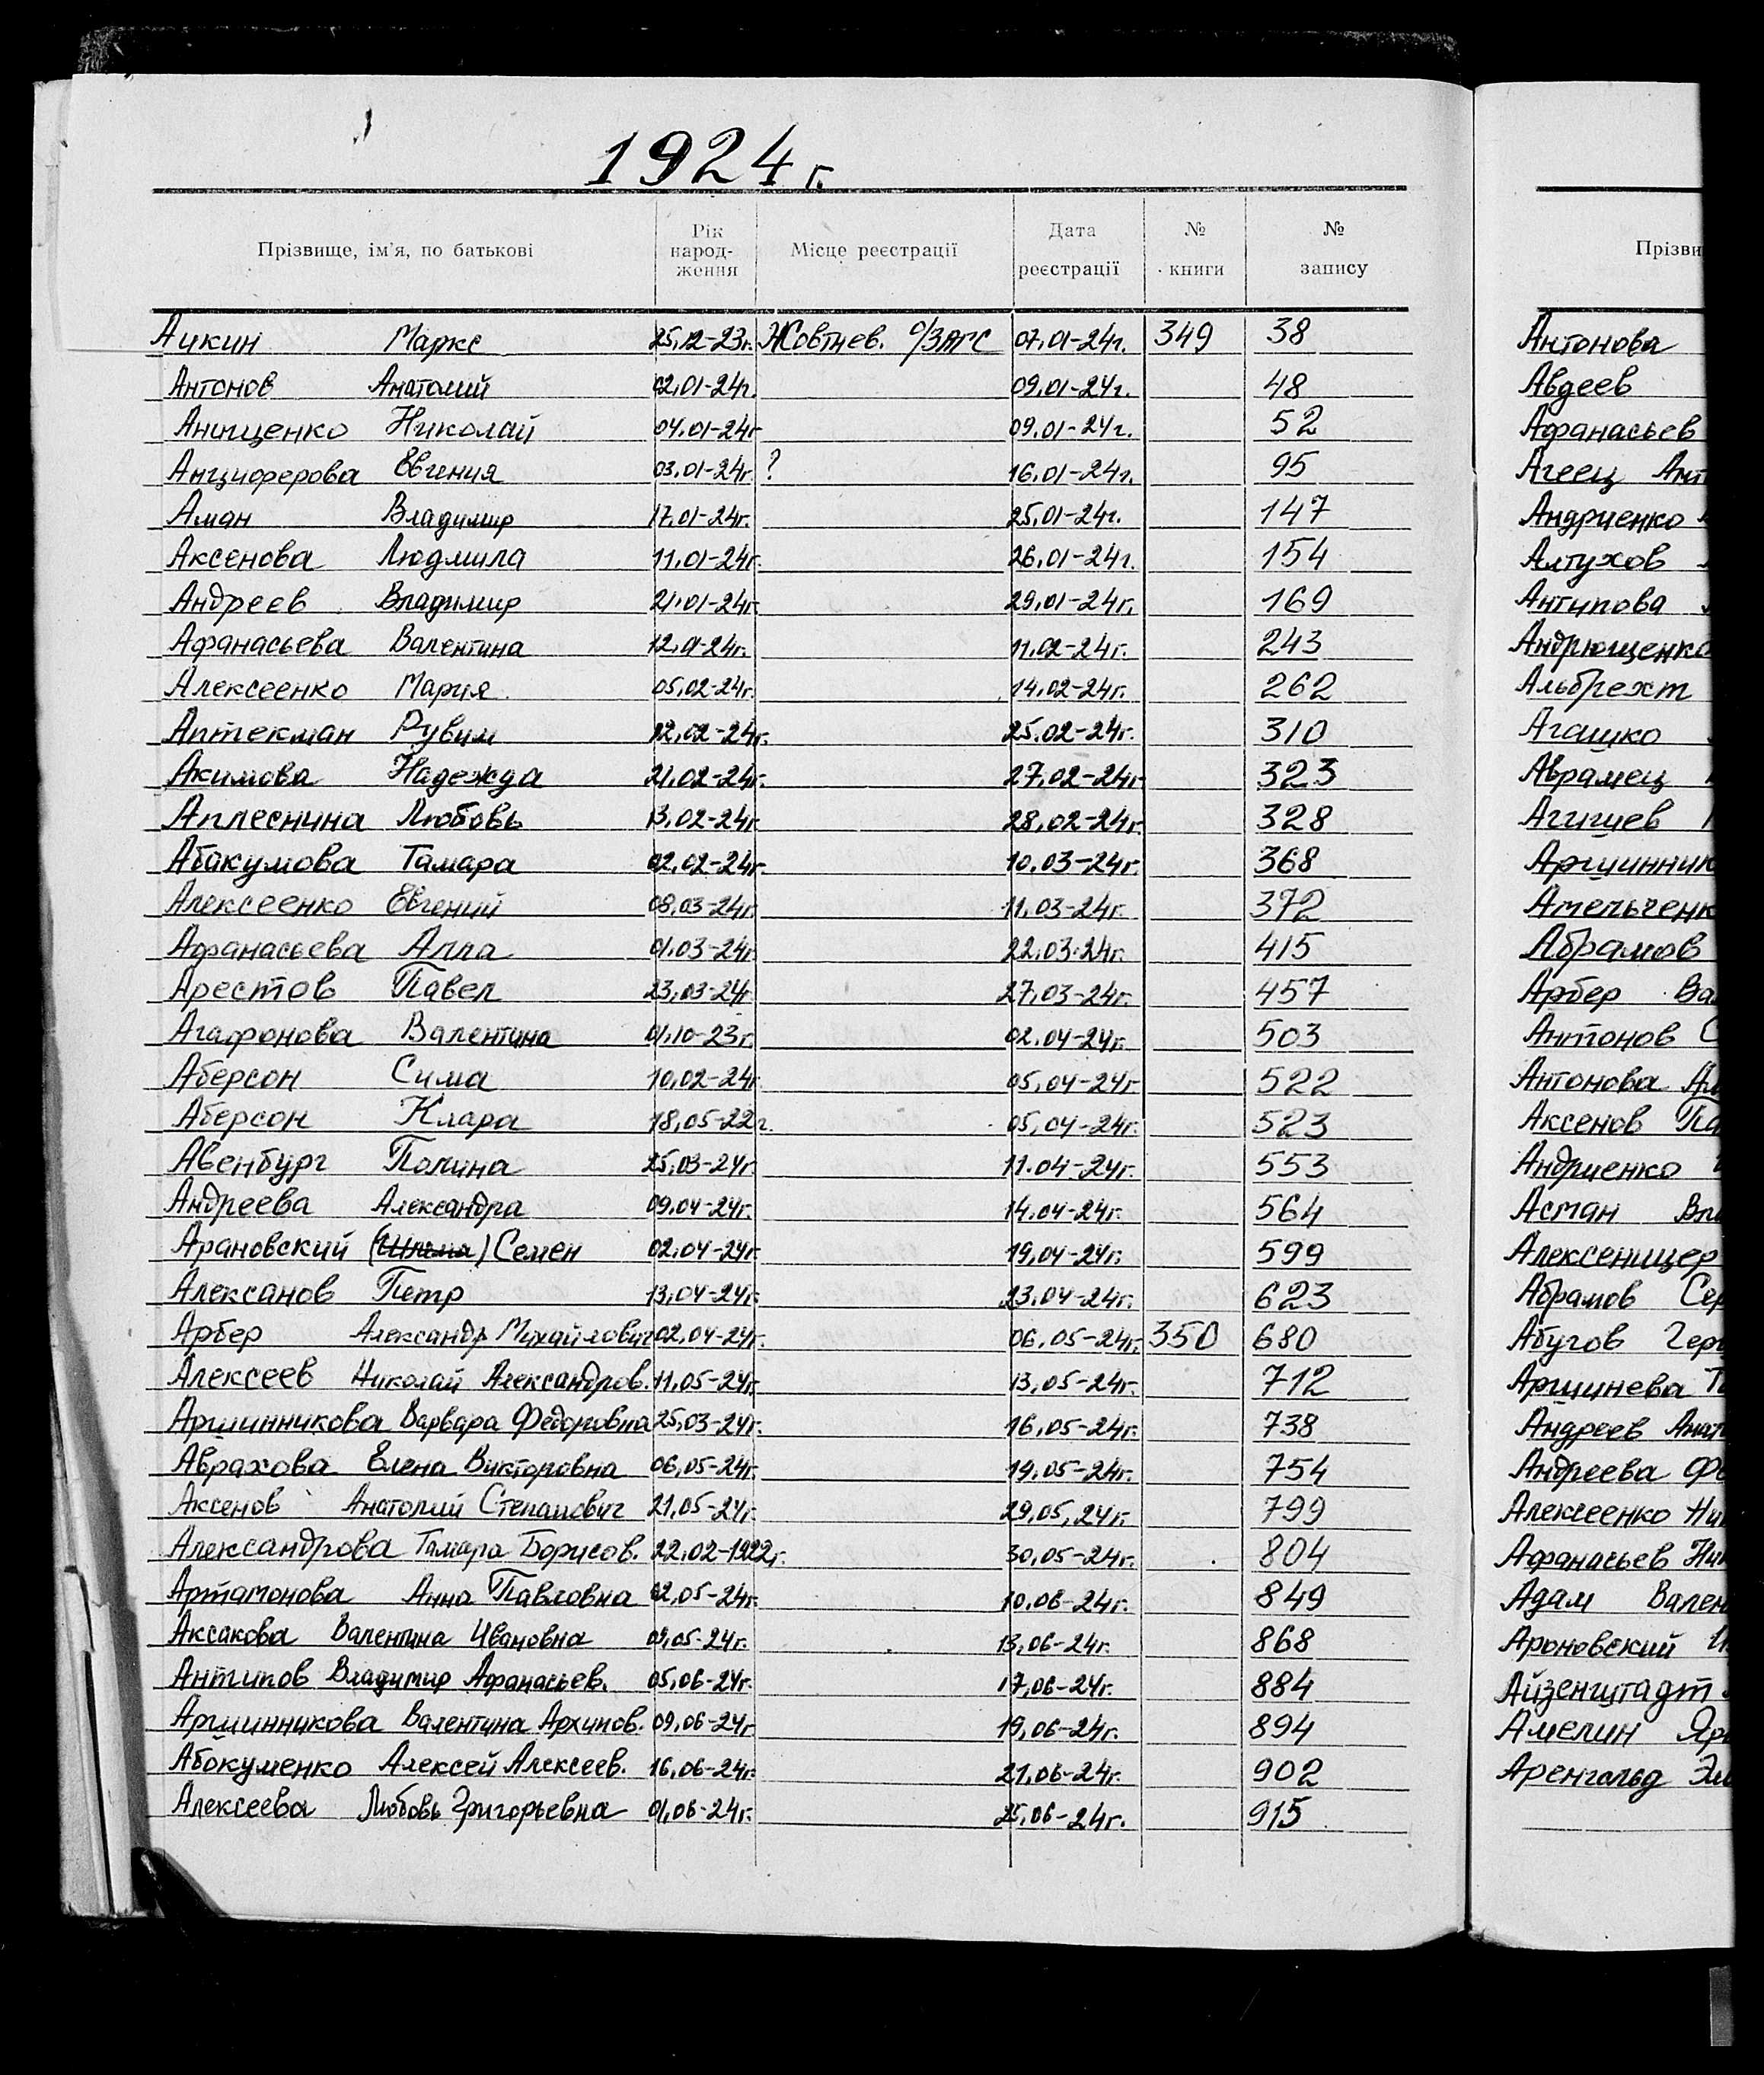 1924 г.
Прізвище, ім'я, по батькові Рік народження Місце реєстрації Дата реєстрації № книги № запису
Аикин Маркс 25.12-23г. Жовтнев. о/ЗАГС 07.01-24г. 349 38
Антонов Анатолий 02.01-24г. 09.01-24г. 48
Анищенко Николай 04.01-24г 09.01-24г. 52
Анциферова Евгения 03.01-24г. ? 16.01-24г. 95
Аман Владимир 17.01-24г. 25.01-24г. 147
Аксенова Людмила 11.01-24г. 26.01-24г. 154
Андреев Владимир 21.01-24г. 29.01-24г. 169
Афанасьева Валентина 12.01-24г. 11.02-24г. 243
Алексеенко Мария 05.02-24г. 14.02-24г. 262
Аптекман Рувим 12.02-24г. 25.02-24г. 310
Акимова Надежда 21.02-24г. 27.02-24г 323
Аплеснина Любовь 13.02-24г. 28.02-24г. 328
Абакумова Тамара 02.02-24г. 10.03-24г. 368
Алексеенко Евгений 08.03-24г. 11.03-24г. 372
Афанасьева Алла 01.03-24г. 22.03.24г. 415
Арестов Павел 23.03-24г 27.03-24г. 457
Агафонова Валентина 01.10-23г. 02.04-24г. 503
Аберсон Сима 10.02-24г. 05.04-24г 522
Аберсон Клара 18.05-22г. 05.04-24г. 523
Авенбург Полина 25.03-24г. 11.04-24г. 553
Андреева Александра 09.04-24г. 14.04-24г. 564
Арановский Семен 02.04-24г 19.04-24г. 599
Алексанов Петр 13.04-24г. 23.04-24г. 623
Арбер Александр Михайлович 02.04-24г. 06.05-24г. 350 680
Алексеев Николай Александров. 11.05-24г. 13.05-24г. 712
Аршинникова Варвара Федоровна 25.03-24г. 16.05-24г. 738
Аврахова Елена Викторовна 06.05-24г. 19.05-24г. 754
Аксенов Анатолий Степанович 21.05-24г. 29.05.24г. 799
Александрова Тамара Борисов. 22.02-1922г. 30.05-24г. 804
Артамонова Анна Павловна 02.05-24г. 10.06-24г. 849
Аксакова Валентина Ивановна 09.05-24г. 13.06-24г. 868
Антипов Владимир Афанасьев. 05.06-24г. 17.06-24г. 884
Аршинникова Валентина Архипов. 09.06-24г 19.06-24г. 894
Абокуменко Алексей Алексеев. 16.06-24г. 21.06-24г. 902
Алексеева Любовь Григорьевна 01.06-24г. 25.06-24г. 915
Прізви
Антонова
Авдеев
Афанасьев
Агеец Ант
Андриенко
Алтухов
Антипова
Андрющенко
Альбрехт
Агашко
Аврамец
Агишев
Аршинник
Амельченк
Абрамов
Арбер Ва
Антонов С
Антонова
Аксенов Па
Андриенко
Асман Вла
Алексеницер
Абрамов Сер
Абугов Гер
Аршинева
Андреев Анат
Андреева Фе
Алексеенко Ни
Афанасьев Ни
Адам Вален
Ароновский
Айзенштадт
Амелин
Аренгольд Эл